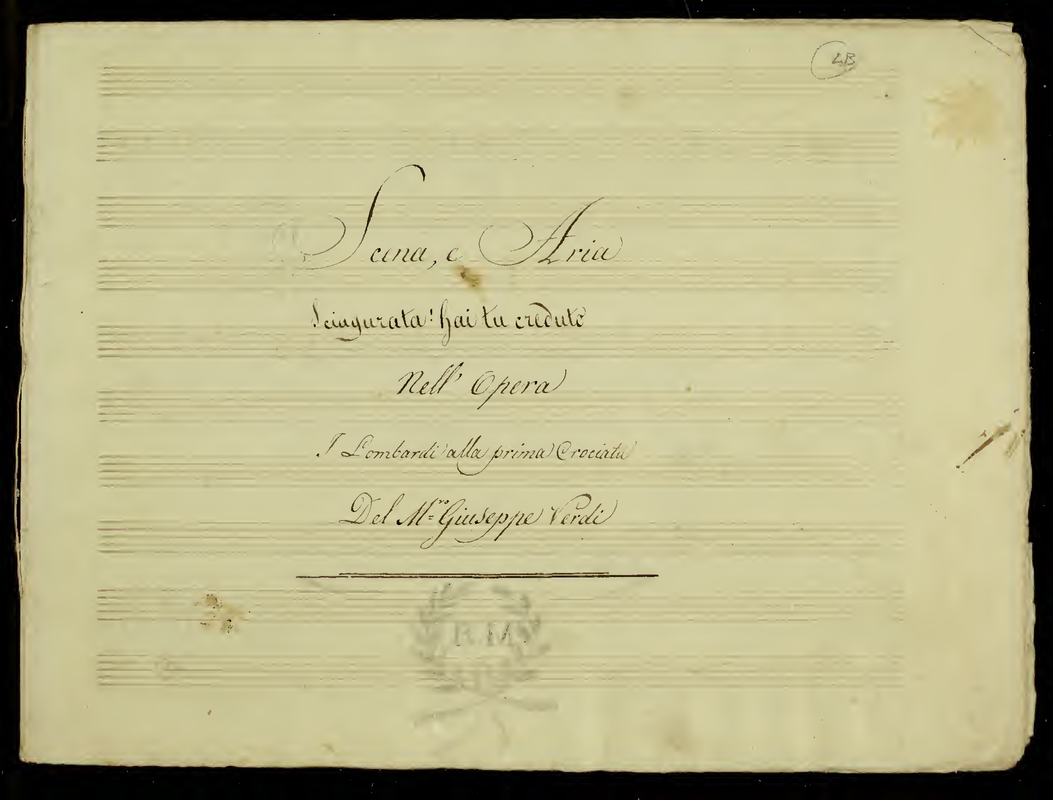 LB
Scena, e Aria
Sciagurata! hai tu creduto
Nell' Opera
I Lombardi alla prima Crociata
Del M.ro Giuseppe Verdi
R. M.